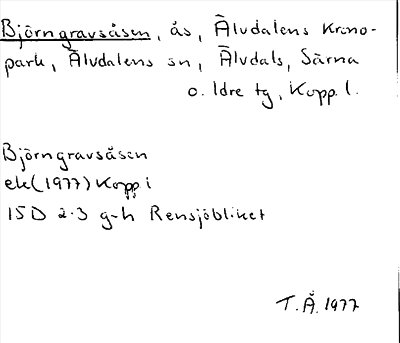 Björngravsåsen, ås, Älvdalens krono-
park, Älvdalens sn, Älvdals, Särna
o. Idre tg, Kopp. l.
Björngravsåsen
ek (1977) Kopp i
15D 2-3 g-h Rensjöbliket
T.Å. 1977